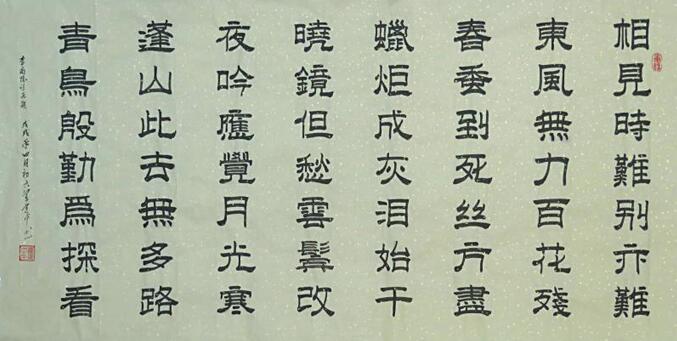 相見時難别亦難
東風無力百花殘
春蚕到死丝方盡
蠟炬成灰泪始干
曉鏡但愁雲鬢改
夜吟應覺月光寒
蓬山此去無多路
青鳥殷勤爲探看
李商隱詩無題 戊戌年四月初六